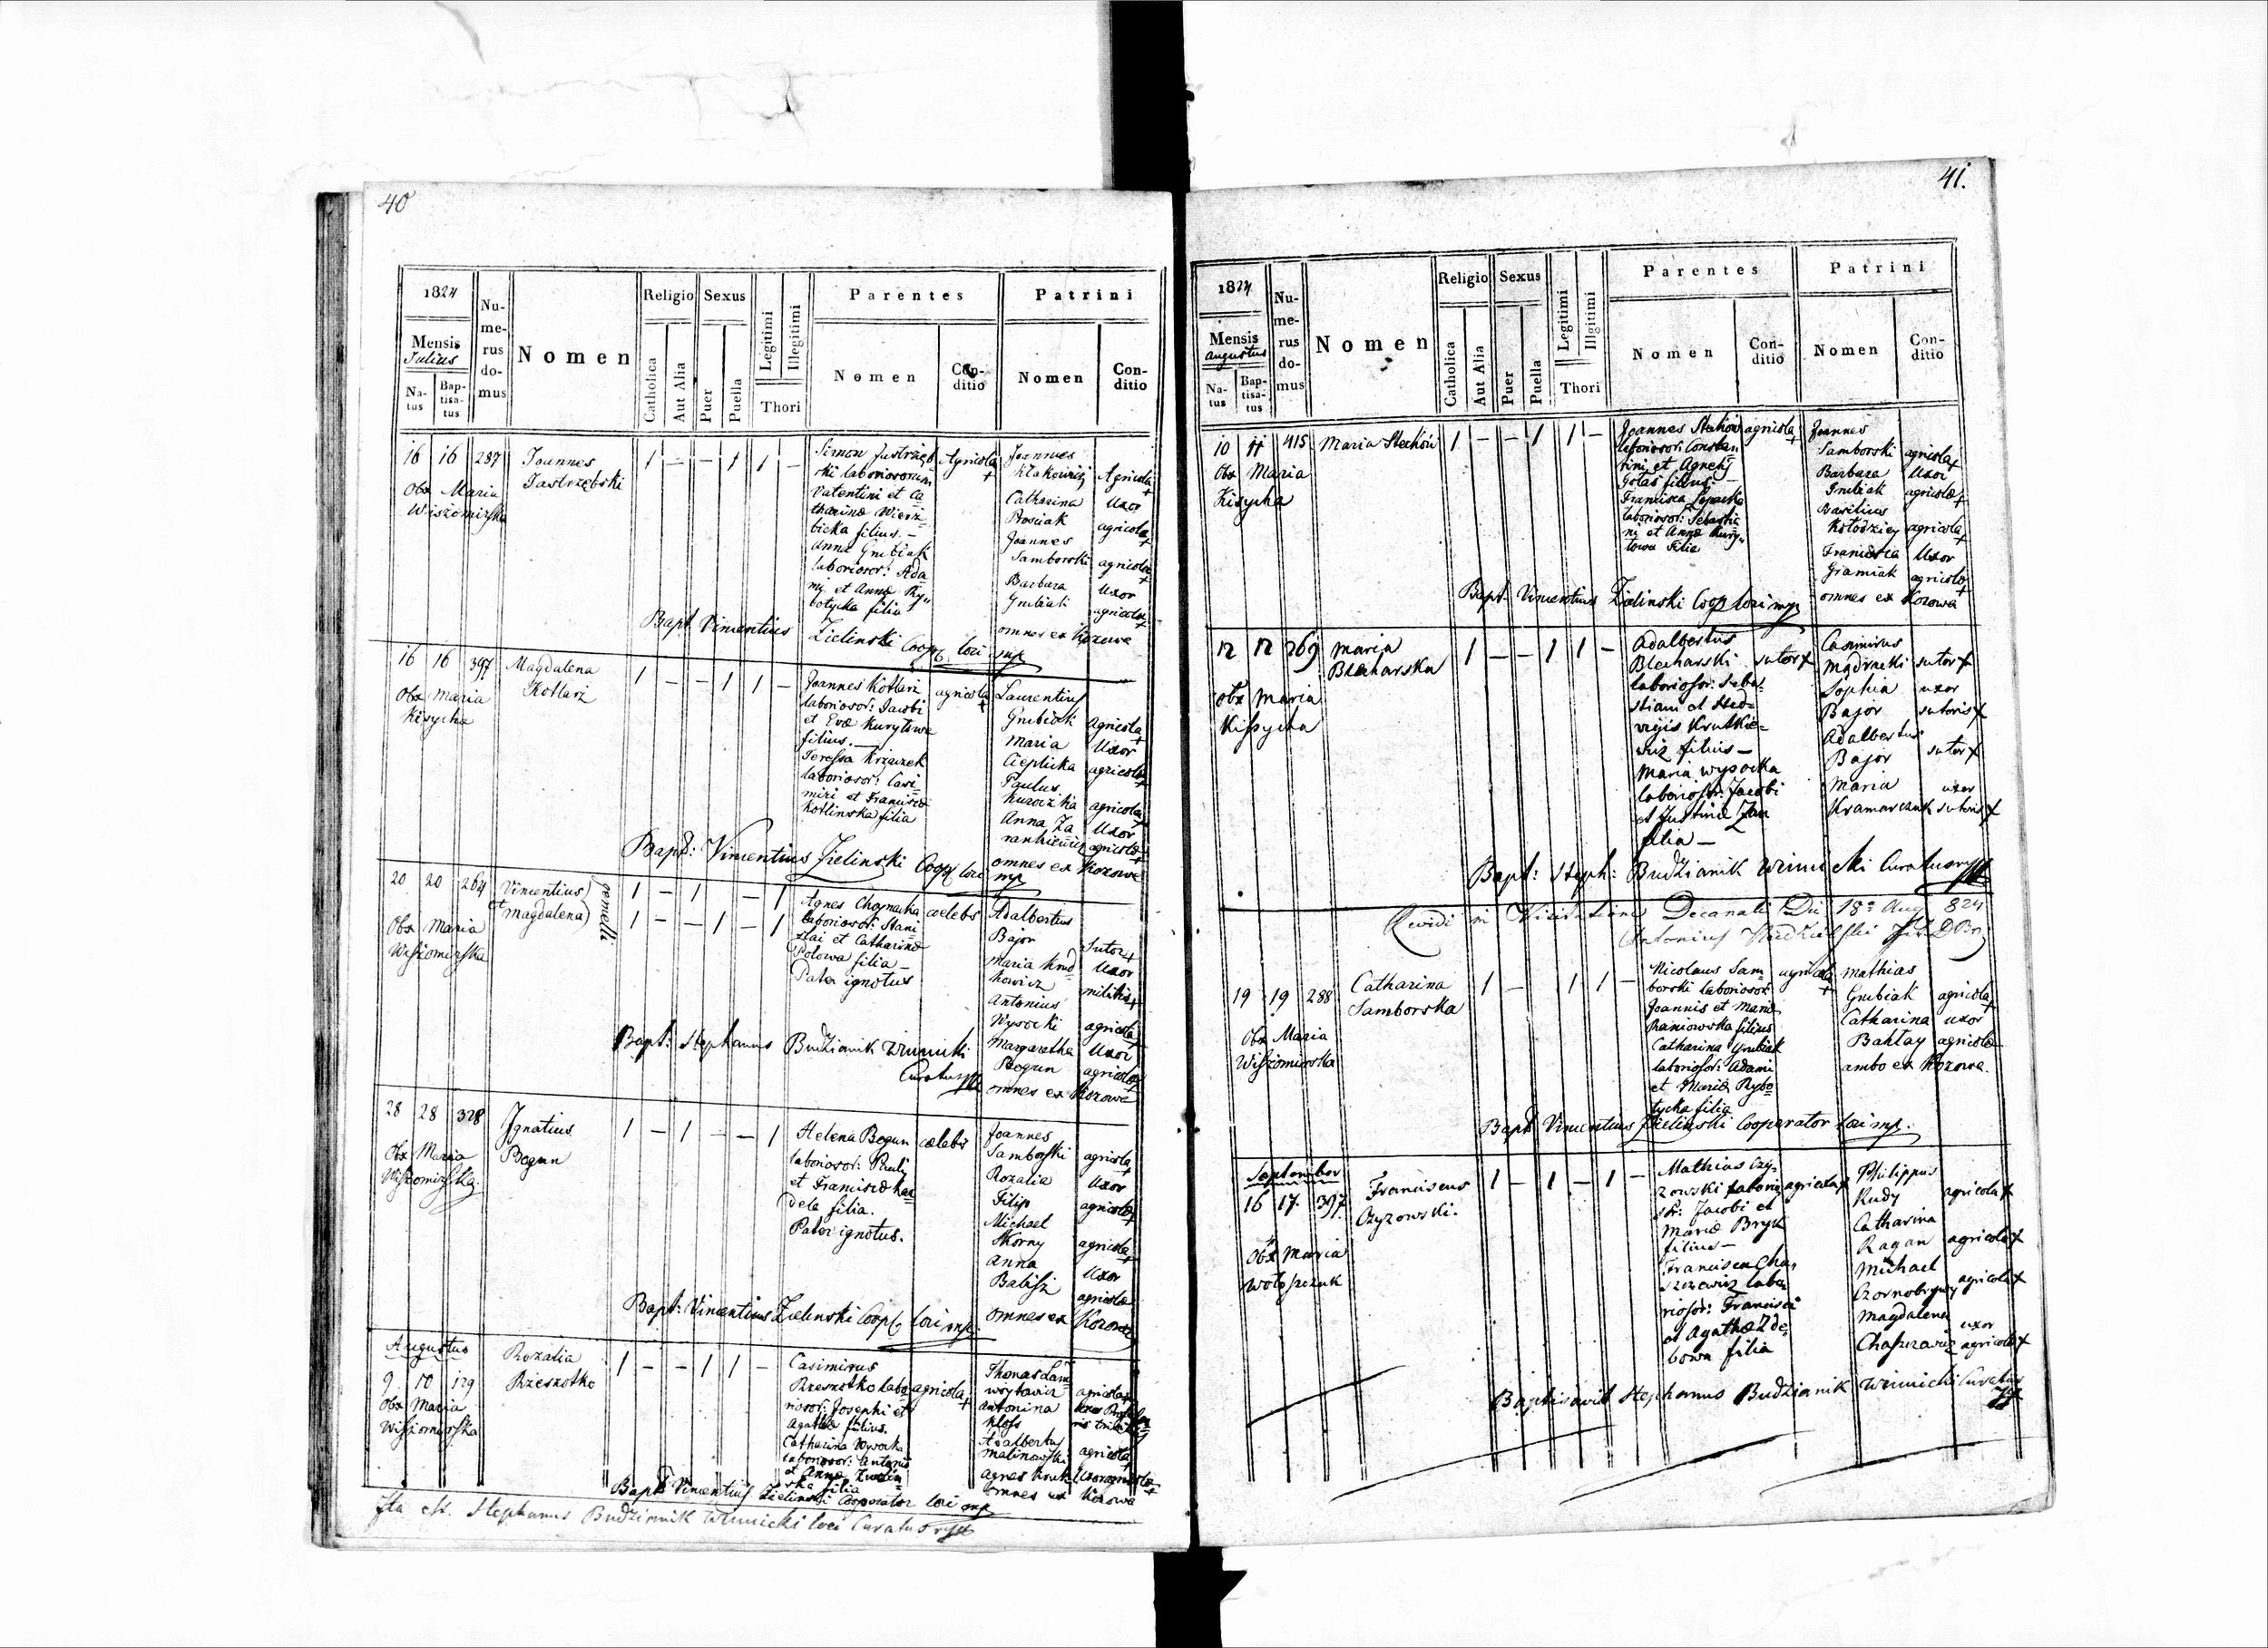 40
1824
Mensis
Julius
Na-
tus
Bap-
tisa-
tus
Nu-
me-
rus
do-
mus
Nomen
Religio
Catholica
Aut Alia
Sexus
Puer
Puella
Legitimi
Illegitimi
Thori
Parentes
Nomen
Con-
ditio
Patrini
Nomen
Con-
ditio
16 16 287
Obx Maria
Wiszomirska
Joannes
Jastrzębski
1 — — 1 1 —
Simon Jastrzęb
ski laboriosorum
Valentini et Ca
tharinæ Wierz
bicka filius. —
Anna Grubiak
laborioso: Ada
mi et Annæ Ry„
botycka filia
Agricola +
Joannes
Catharina
Rosiak
Joannes
Samborski
Barbara
Grubiak
omnes ex Kozowa
Agricola +
Uxor
agricolæ +
agricola +
Uxor
agricolæ +
Bapt Vincentius Zielinski Coop loci mp
16 16 397
Obx Maria
Kisycha
Magdalena
Kotlarz
1 — — 1 1 —
Joannes Kotlarz
laboriosor: Jacobi
et Evæ Kurytowa
filius. —
Teressa Krzaczek
laboriosor: Casi
miri et Franciscæ
Kotlinska filia
agricola +
Laurentius
Grubiak
Maria
Cieplicka
Paulus
Anna Za
omnes ex Kozowa
Agricola +
Uxor
agricolæ +
agricola +
Uxor
agricolæ +
Bapt: Vincentius Zielinski Coop loci mp
20 20 264
Obx Maria
Wiszomirska
Vincentius)
et Magdalena)
gemelli
1 — 1 — 1
1 — — 1 — 1
Agnes Chojnacka
laboriosor: Stani
slai et Catharinæ
Polowa filia —
Pater ignotus
cælebs
Adalbertus
Bajor
Maria Knid
kowicz
Antonius
Wysocki
Margaretha
Begun
omnes ex Kozowa
Sutor +
Uxor
militis +
agricola +
Uxor
agricolæ +
Bapt: Stephanus Budzianik Winnicki
Curatus mp
28 28 328
Obx Maria
Wiszomirska
Ignatius
Begun
1 — 1 — — 1
Helena Begun
laboriosor: Pauli
et Franciscæ Kar
dela filia.
Pater ignotus.
cælebs
Joannes
Samborski
Rozalia
Filip
Michael
Skorny
Anna
Babisz
omnes ex Kozowa
agricola +
Uxor
agricolæ +
agricola +
Uxor
agricolæ
Bapt: Vincentius Zielinski Coop loci mp.
Augustus
9 10 129
Obx Maria
Wiszomirska
Rozalia
Rzeszotko
1 — — 1 1 —
Casimirus
Rzeszotko labo
riosor: Josephi et
Agathæ filius.
Catharina Wysocka
laboriosor: Antonii
et Annæ
ska filia
agricola +
Thomas Lam
Antonina
Kloss
Adalbertus
Malinowski
Agnes
omnes ex Kozowa
agricola +
agricola +
Uxor agricolæ +
Bapt Vincentius Zielinski Cooperator loci mp
Ita est. Stephanus Budzianik Winnicki loci Curatus mp
41.
1824
Mensis
Augustus
Na-
tus
Bap-
tisa-
tus
Nu-
me-
rus
do-
mus
Nomen
Religio
Catholica
Aut Alia
Sexus
Puer
Puella
Legitimi
Illgitimi
Thori
Parentes
Nomen
Con-
ditio
Patrini
Nomen
Con-
ditio
10 11 415
Obx Maria
Kisycha
Maria Stechów
1 — — 1 1 —
Joannes Stechów
laboriosor: Constan
tini et Agnetis
Gotas filius —
Francisca
laboriosor: Sebastia
ni et Annæ Kury„
towa Filia
agricola +
Joannes
Samborski
Barbara
Grubiak
Basilius
Kołodziey
Francisca
Gramiak
omnes ex Kozowa
agricola +
Uxor
agricolæ +
agricola +
Uxor
agricolæ +
Bapt: Vincentius Zielinski Coop loci mp
12 12 269
Obx Maria
Kissycha
Maria
Blecharska
1 — — 1 1 —
Adalbertus
Blecharski
laboriosor: Seba
stiani et Hed
vigis Krutkie
wicz filius —
Maria Wysocka
laboriosor: Jacobi
et Justinæ Zan
filia —
sutor +
Casimirus
Mądrzecki
Sophia
Bajor
Adalbertus
Bajor
Maria
Kramarczuk
sutor +
uxor
sutoris +
sutor +
uxor
sutoris +
Bapt: Steph: Budzianik Winnicki Curatus mp
vidi in Visitatione Decanali Die 18a Aug 824
Antonius
19 19 288
Obx Maria
Wiszomirska
Catharina
Samborska
1 — 1 1 —
Nicolaus Sam
borski laboriosor:
Joannis et Mariæ
Raniowska filius
Catharina Grubiak
laboriosor: Adami
et Mariæ Rybo
tycka filia
agricola +
Mathias
Grubiak
Catharina
Bahtay
ambo ex Kozowa.
agricola +
uxor
agricolæ
Bapt Vincentius Zielinski Cooperator loci mp.
September
16 17. 397.
Obx Maria
Wołoszczuk
Franciscus
Czyzowski.
1 — 1 — 1 —
Mathias Czy
zowski laborio
sor: Jacobi et
Mariæ Bryk
filius —
Francisca Cha
szczewicz labo
riosor: Francisci
et Agathæ Zde
bowa filia
agricola +
Philippus
Rudy
Catharina
Ragan
Michael
Czornobrywy
Magdalena
Chaszczewicz
agricola +
agricola +
agricola +
uxor
agricola +
Baptisavit Stephanus Budzianik Winnicki Curatus
mp